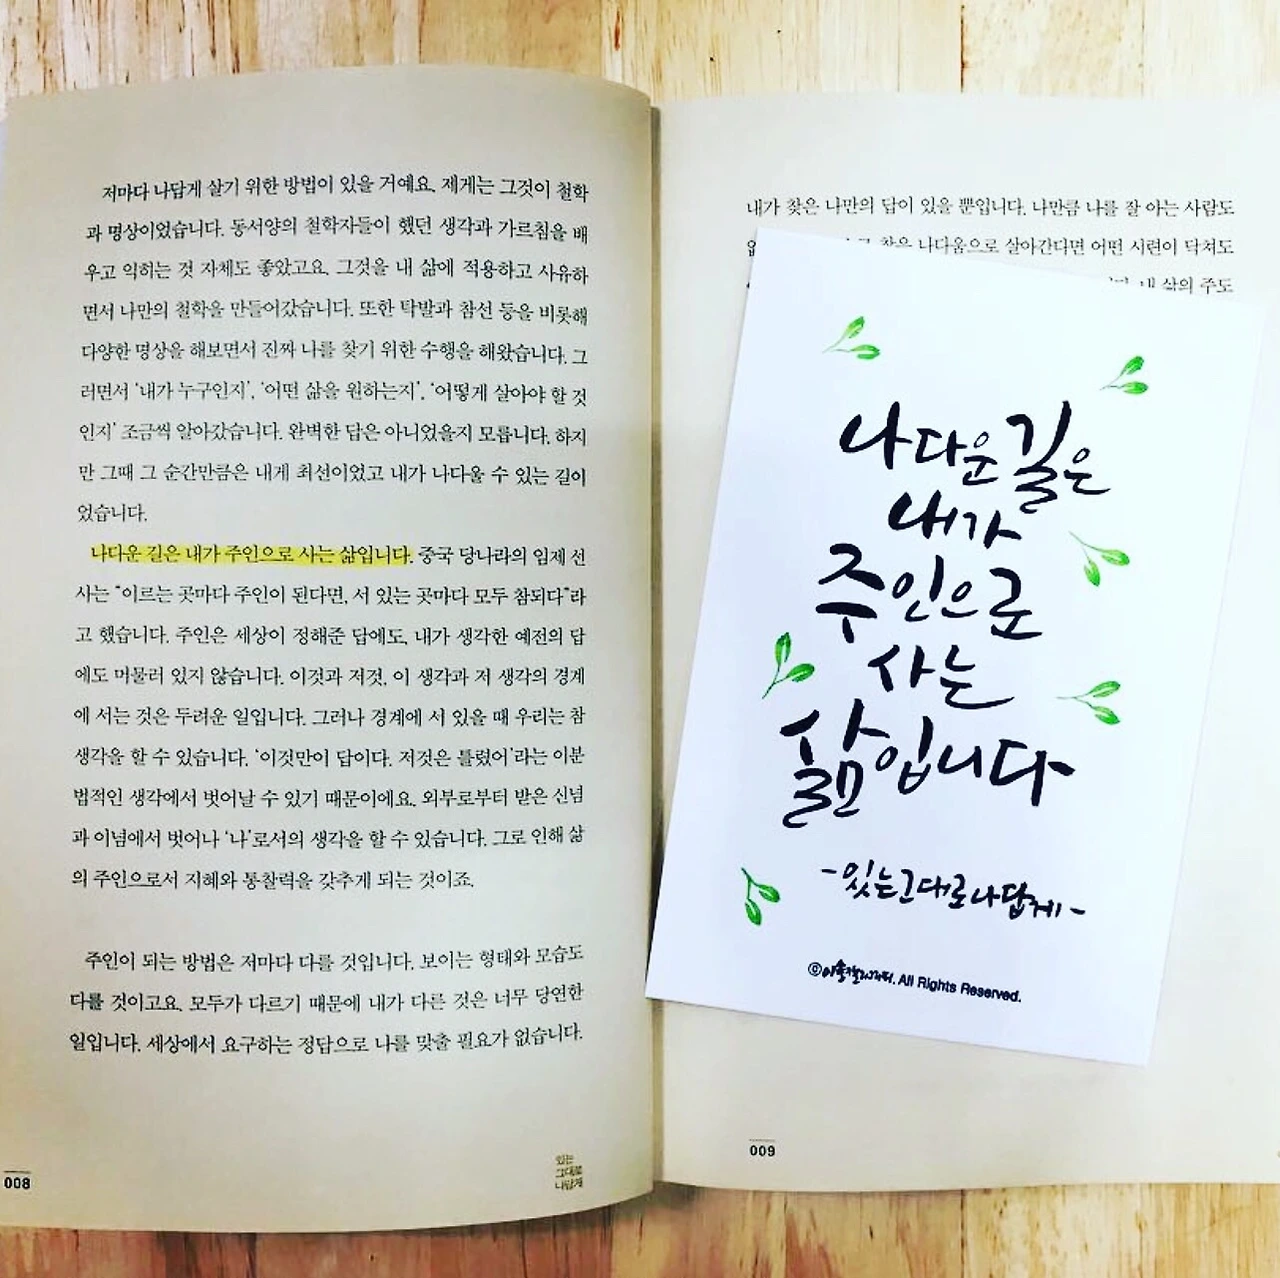 저마다 나답게 살기 위한 방법이 있을 거예요. 제게는 그것이 철학
과 명상이었습니다. 동서양의 철학자들이 했던 생각과 가르침을 배
우고 익히는 것 자체도 좋았고요. 그것을 내 삶에 적용하고 사유하
면서 나만의 철학을 만들어갔습니다. 또한 탁발과 참선 등을 비롯해
다양한 명상을 해보면서 진짜 나를 찾기 위한 수행을 해왔습니다. 그
러면서 ‘내가 누구인지’, ‘어떤 삶을 원하는지’, ‘어떻게 살아야 할 것
인지’ 조금씩 알아갔습니다. 완벽한 답은 아니었을지 모릅니다. 하지
만 그때 그 순간만큼은 내게 최선이었고 내가 나다울 수 있는 길이
었습니다.
나다운 길은 내가 주인으로 사는 삶입니다. 중국 당나라의 임제 선
사는 “이르는 곳마다 주인이 된다면, 서 있는 곳마다 모두 참되다”라
고 했습니다. 주인은 세상이 정해준 답에도, 내가 생각한 예전의 답
에도 머물러 있지 않습니다. 이것과 저것, 이 생각과 저 생각의 경계
에 서는 것은 두려운 일입니다. 그러나 경계에 서 있을 때 우리는 참
생각을 할 수 있습니다. ‘이것만이 답이다. 저것은 틀렸어’라는 이분
법적인 생각에서 벗어날 수 있기 때문이에요. 외부로부터 받은 신념
과 이념에서 벗어나 ‘나’로서의 생각을 할 수 있습니다. 그로 인해 삶
의 주인으로서 지혜와 통찰력을 갖추게 되는 것이죠.
주인이 되는 방법은 저마다 다를 것입니다. 보이는 형태와 모습도
다를 것이고요. 모두가 다르기 때문에 내가 다른 것은 너무 당연한
일입니다. 세상에서 요구하는 정답으로 나를 맞출 필요가 없습니다.
008
있는
그대로
나답게
내가 찾은 나만의 답이 있을 뿐입니다. 나만큼 나를 잘 아는 사람도
찾은 나다움으로 살아간다면 어떤 시련이 닥쳐도
내 삶의 주도
나다운 길은
내가
주인으로
사는
삶입니다
-있는그대로나답게-
All Rights Reserved.
009